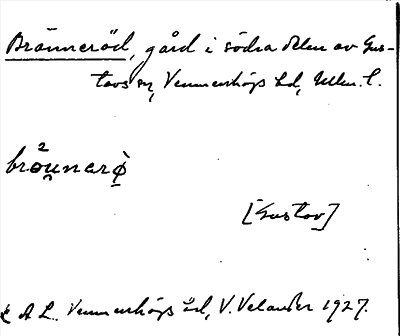 Bränneröd, gård i södra delen av Gus-
tavs sn, Vemmenhögs hd, Mlm. l.
[Gustav]
A L. Vemmenhögs hd, V. Velander 1927.